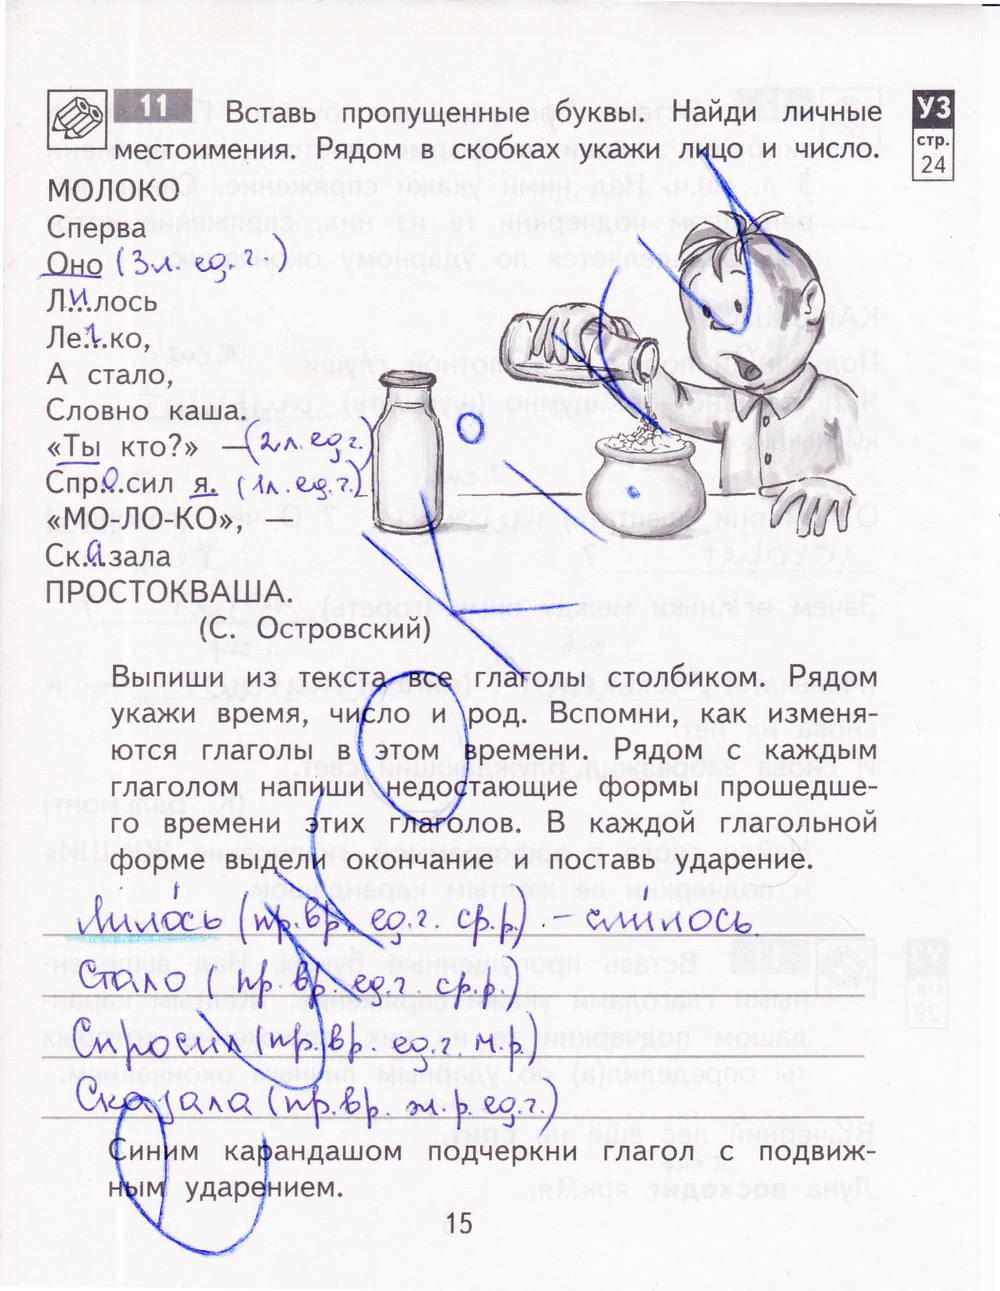 11 Вставь пропущенные буквы. Найди личные
местоимения. Рядом в скобках укажи лицо и число.
УЗ
стр.
24
МОЛОКО
Сперва
Оно (3л. ед.ч.)
Л.и.лось
Ле.г.ко,
А стало,
Словно каша.
«Ты кто?» — (2л. ед.ч.)
Спр.о.сил я. (1л. ед.ч.)
«МО-ЛО-КО», —
Ск.а.зала
ПРОСТОКВАША.
(С. Островский)
Выпиши из текста все глаголы столбиком. Рядом
укажи время, число и род. Вспомни, как изменя-
ются глаголы в этом времени. Рядом с каждым
глаголом напиши недостающие формы прошедше-
го времени этих глаголов. В каждой глагольной
форме выдели окончание и поставь ударение.
лилось (пр.вр. ед.ч. ср.р) -
Стало (пр.вр. ед.ч. ср.р.)
Спросил (пр.вр. ед.ч. м.р.)
Сказала (пр.вр. ж.р. ед.ч.)
Синим карандашом подчеркни глагол с подвиж-
ным ударением.
15